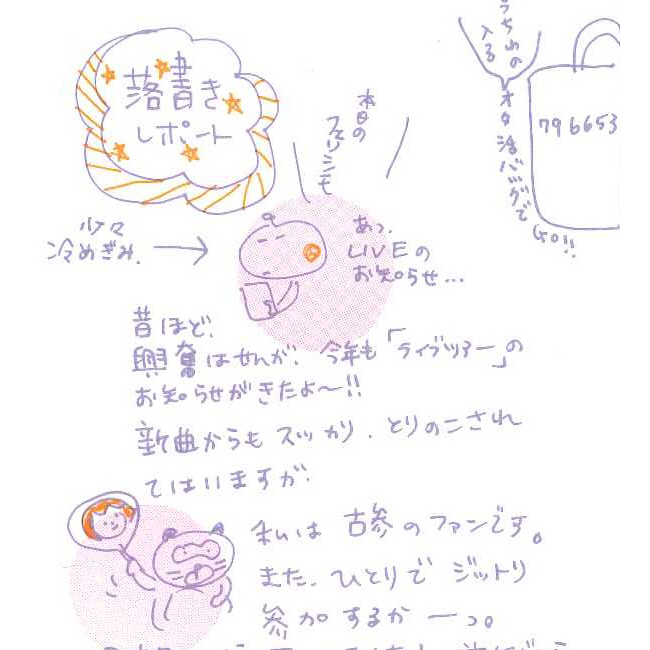 落書き
レポート
うちわの
入る
オタ活バッグで
GO!!
796653
本日の
フェリシモ
少々
冷めぎみ。
あっ、
LIVEの
お知らせ…
昔ほど、
興奮はせんが、今年も「ライブツアー」の
お知らせがきたよ〜!!
新曲からもスッカリ、とりのこされ
てはいますが、
私は古参のファンです。
また、ひとりでジットリ
参加するかーっ。